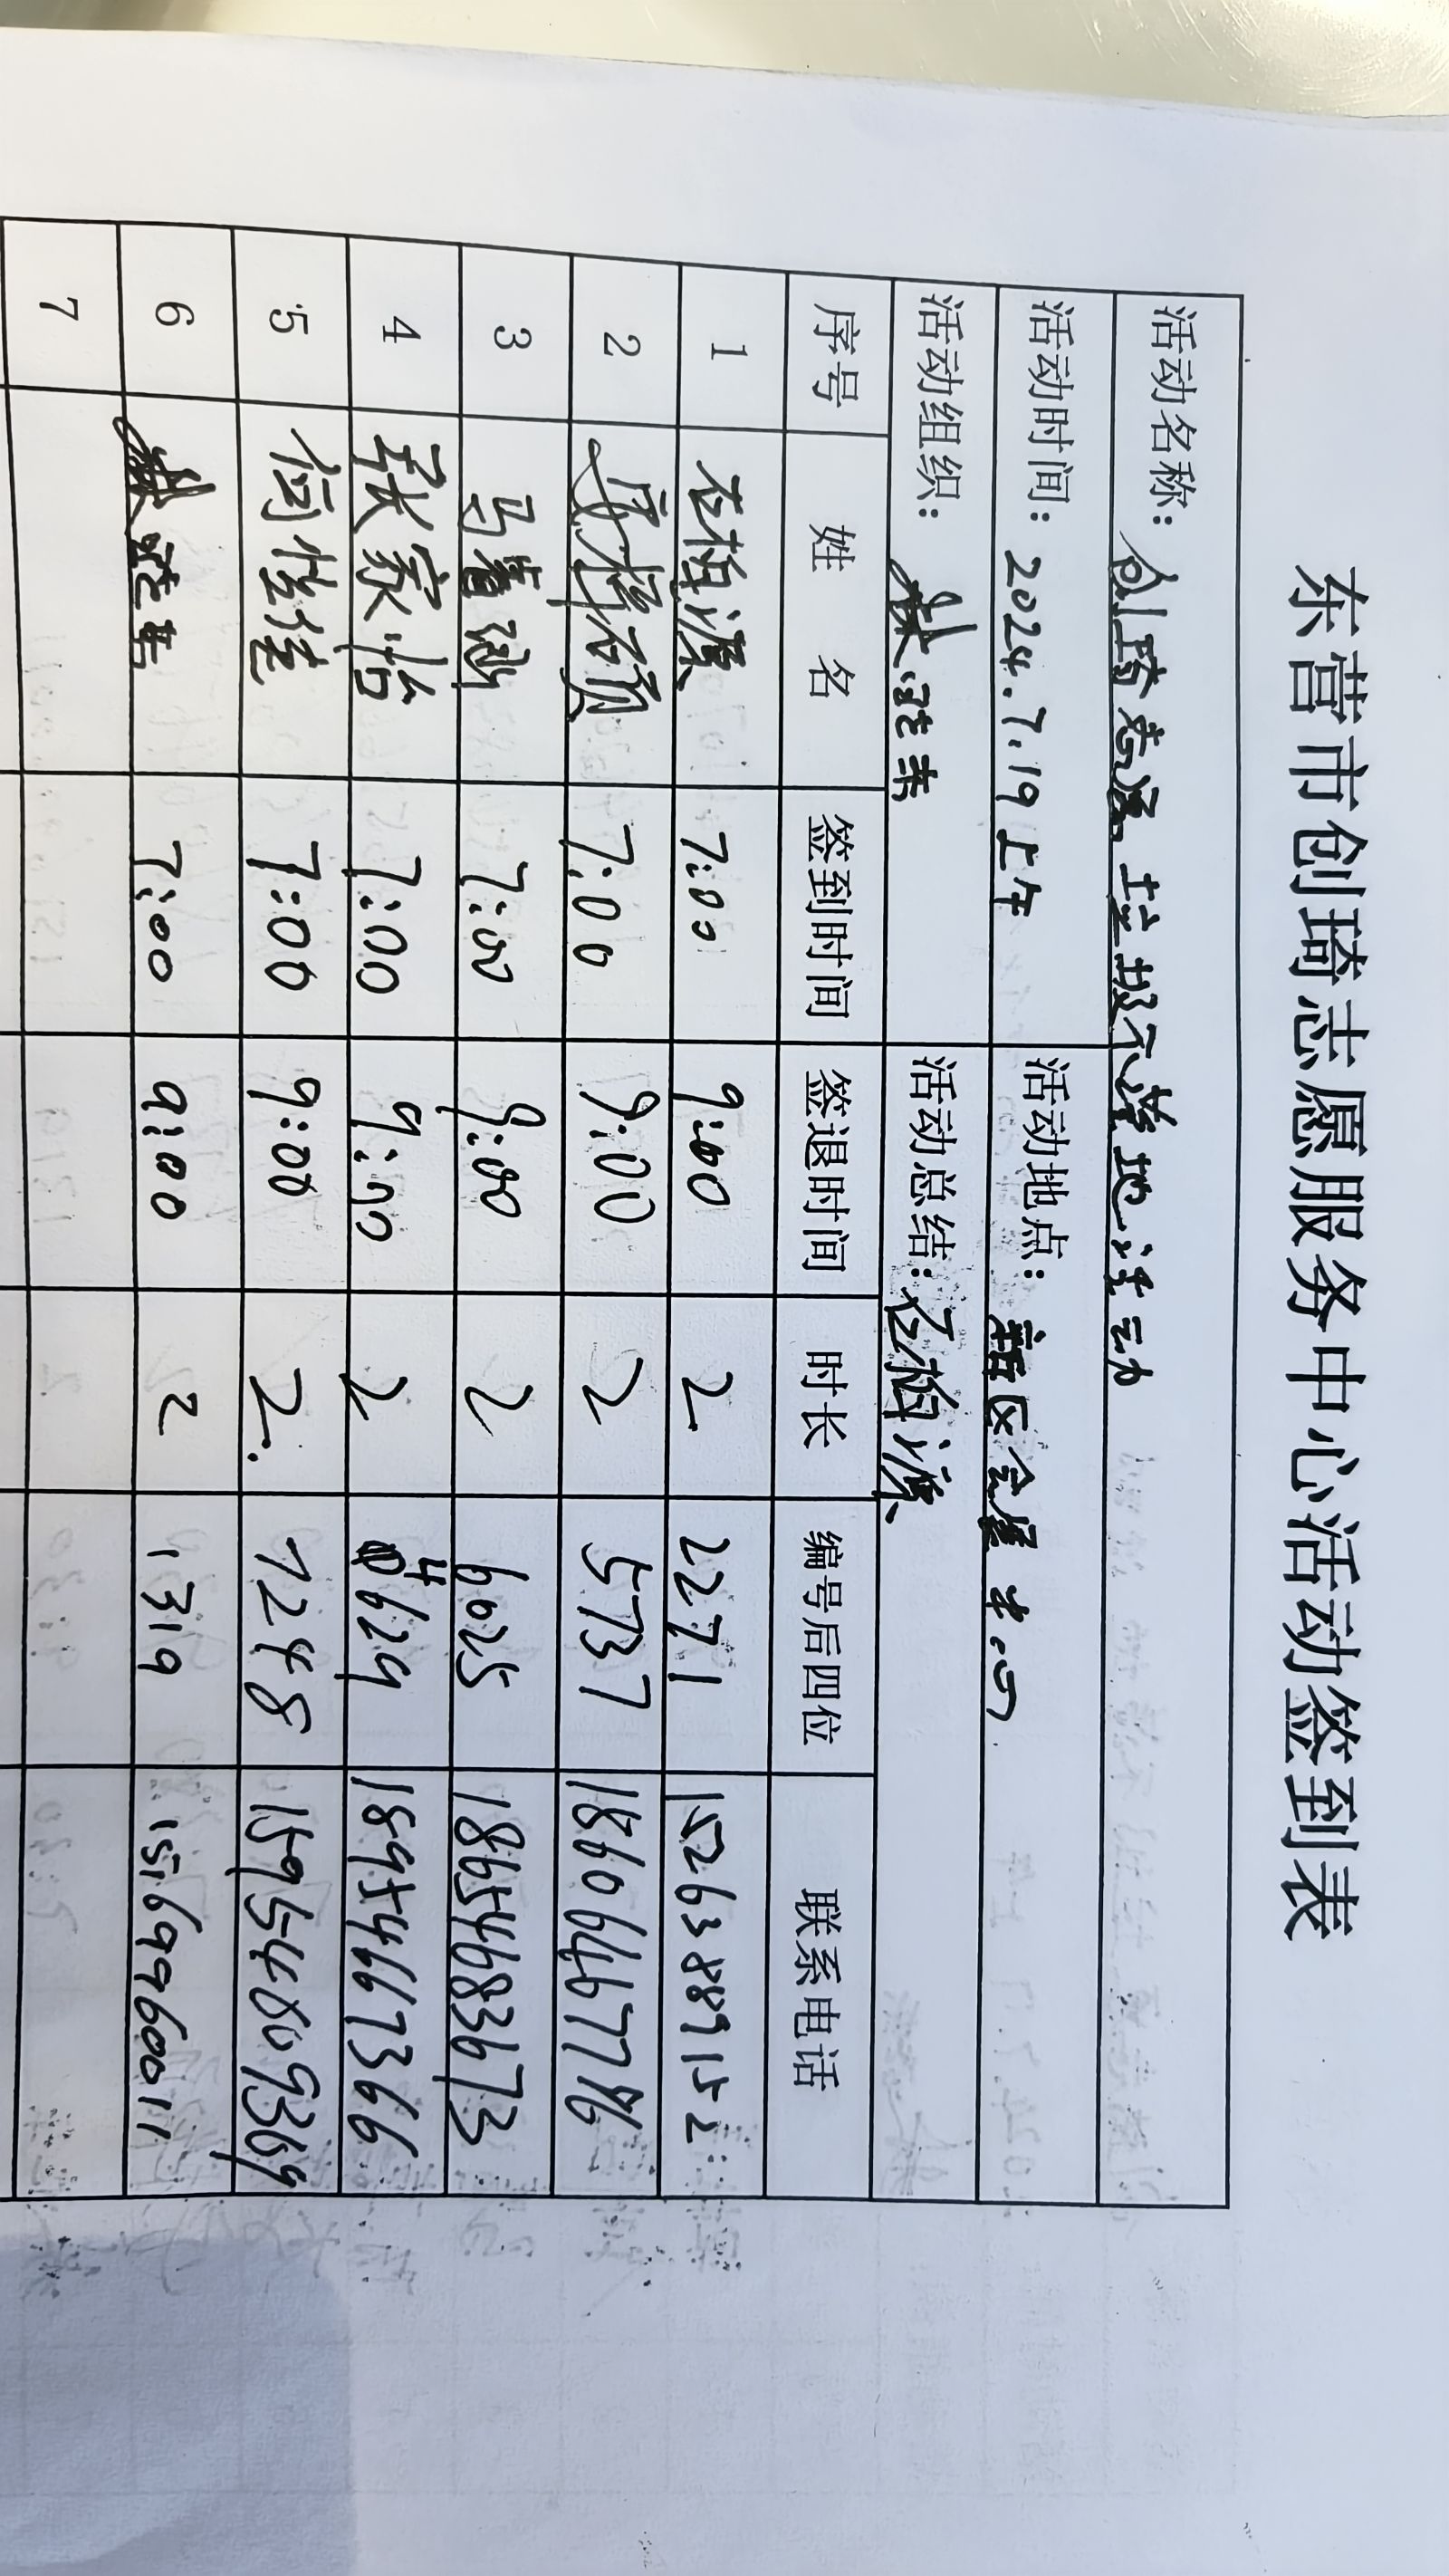 东营市创琦志愿服务中心活动签到表
活动名称：创琦志愿 垃圾不落地活动
活动时间：2024.7.19上午 活动地点：新区会展中心
活动组织： 活动总结：石柏源
序号 姓 名 签到时间 签退时间 时长 编号后四位 联系电话
1 石柏源 7:00 9:00 2 2271 15263889152
2 7:00 9:00 2 5737 18606467796
3 7:00 9:00 2 6025 18654683673
4 张家怡 7:00 9:00 2 4629 18954667366
5 7:00 9:00 2. 7248 15954809369
6 7:00 9:00 2 1319 15699960011
7